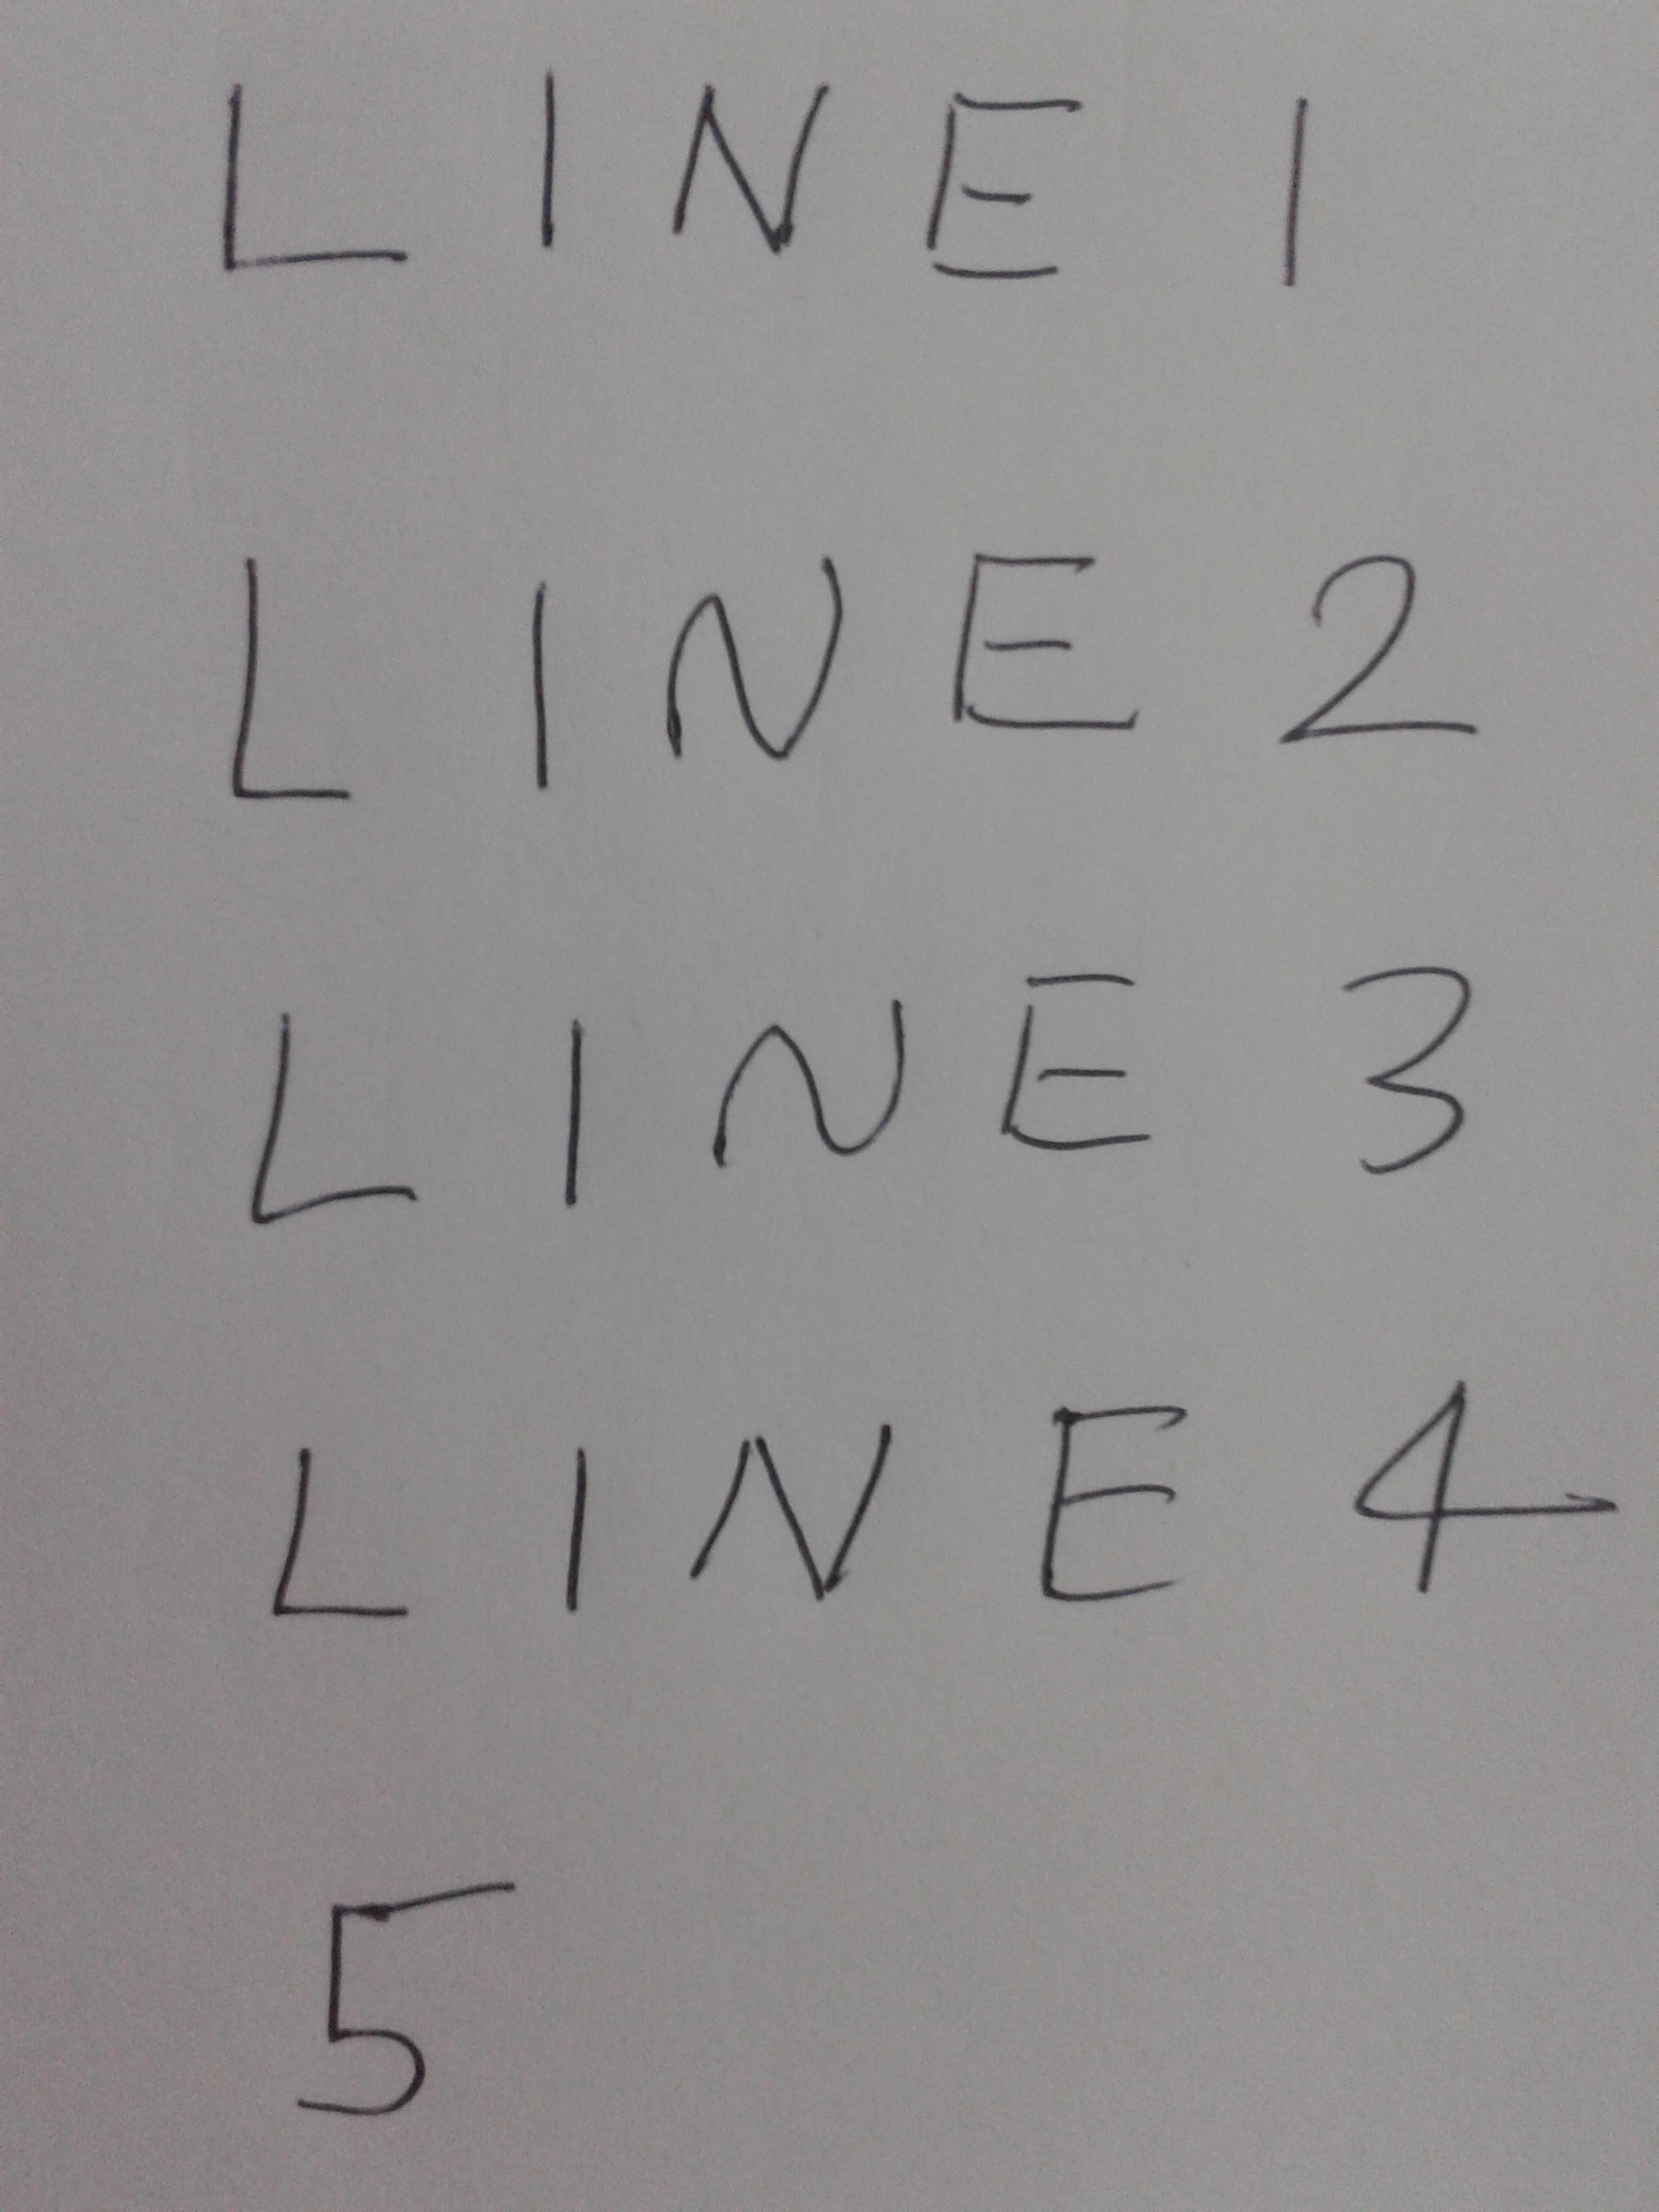 LINE 1
LINE 2
LINE 3
LINE 4
5